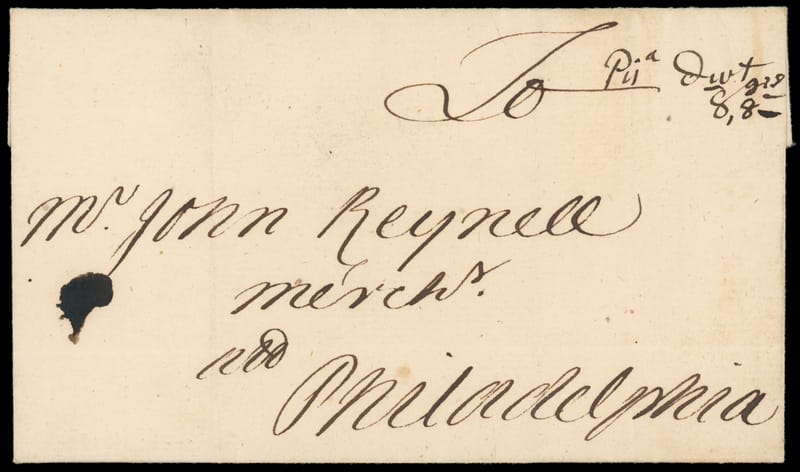 To Pija Dwt grs
8, 8
Mr. John Reynell
merchr.
Philadelphia